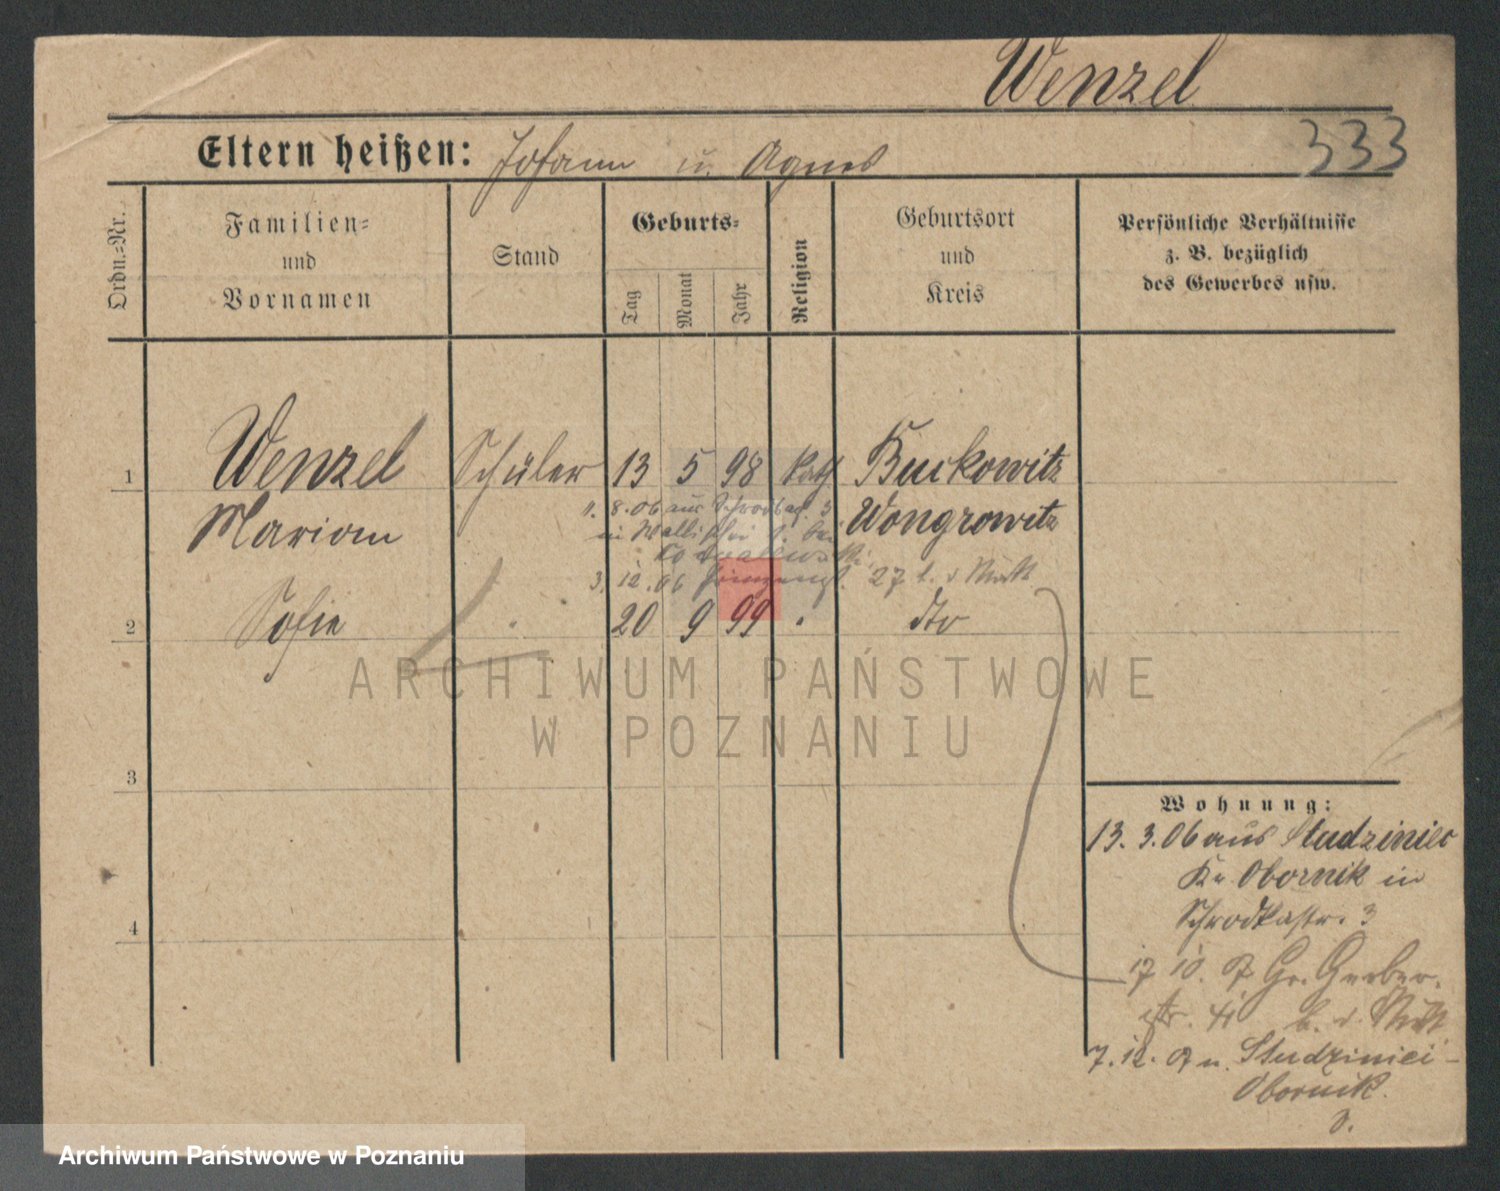 Wenzel
333
Eltern heißen: Johann u. Agnes
Ordn.=Nr.
Familien=
und
Vornamen
Stand
Geburts=
Tag
Monat
Jahr
Religion
Geburtsort
und
Kreis
Persönliche Verhältnisse
z. B. bezüglich
des Gewerbes usw.
1 Wenzel Schüler 13 5 98 kath Buckowitz
Marian Wongrowitz
11. 8.06 aus Schrodkastr. 3
in Wallischei
3. 12. 06 27 b. d Mutt
2 Sofie 20 9 99 dto
3
4
ARCHIWUM PAŃSTWOWE
W POZNANIU
Wohnung:
13. 3. 06 aus Studziniec
Kr. Obornik in
Schrodkastr. 3
17 10. 07 Gr. Gerber-
str. 41 b. d. Mutt
7. 12. 07 n. Studziniec-
Obornik.
Archiwum Państwowe w Poznaniu